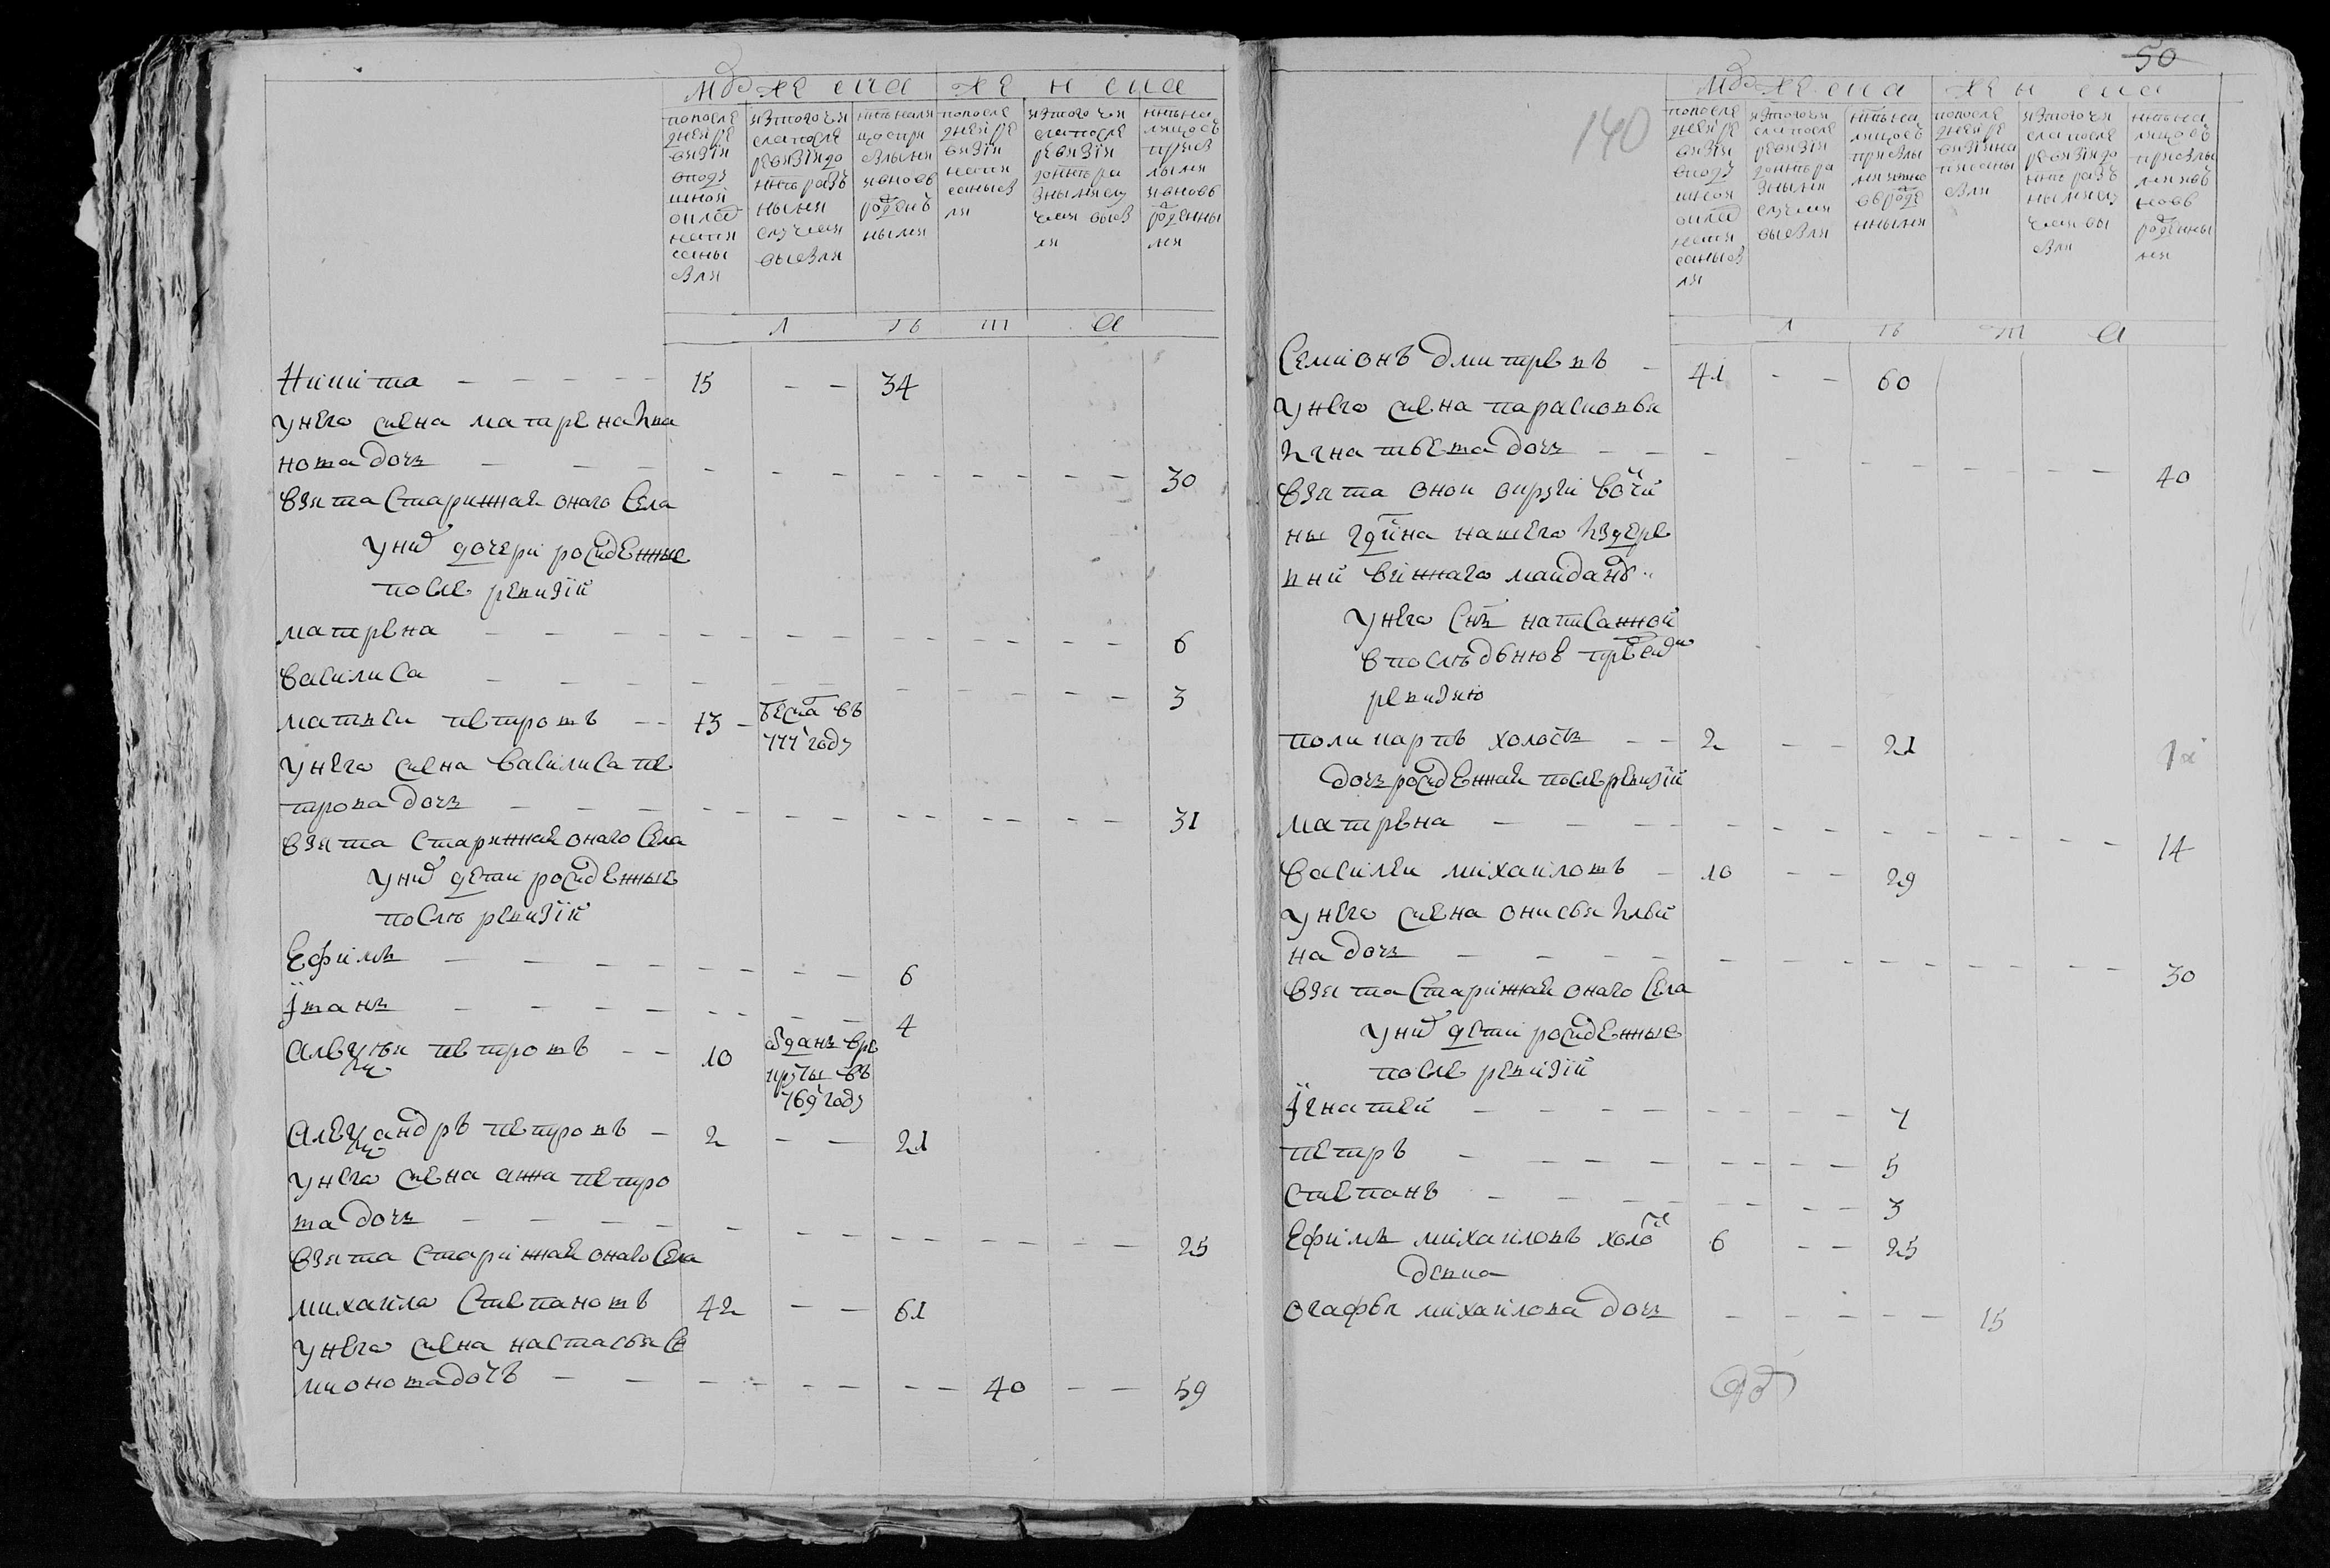 мужеска женска
попосле
дней ре
визїи
вподу
шной
оклад
напи
саны
бли
изтогочи
сла после
ревизїи до
ннѣ разъ
ными
случаи
выбыли
ннѣ нали
цо спри
былыми
и новѣ
рожденъ
ными
попосле
дней ре
визїи
напи
саны бы
ли
изтого чи
сла после
ревизїи
до ннѣ ра
зными слу
чаи выбы
ли
ннѣ на
лицо съ
прибы
лыми
и новѣ
рожденны
ми
л ѣ т а
Никита 15 34
унего жена матрена Ива
нова дочь 30
взята старинная оного села
уних дочери рожденные
после ревизїи
матрена 6
василиса 3
матвеи петровъ 13 бежа въ
777 году
унего жена василиса пе
трова дочь 31
взята старинная оного села
уних дети рожденные
послѣ ревизїи
Ефимъ 6
Їванъ 4
алексеи петровъ 10 отданъ вре
круты въ
769 году
александръ петровъ 2 21
унего жена анна петро
ва дочь 25
взята старинная оного села
михаила степановъ 42 61
унего жена настасья се
мионова дочъ 40 59
50
140
мужеска женска
попосле
дней ре
визїи
вподу
шной
оклад
напи
саны бы
ли
изтогочи
сла после
ревизїи
до ннѣ ра
зными
случаи
выбыли
ннѣ на
лицо съ
прибы
лыми
и новѣ рожде
нными
попосле
дней ре
визїи на
писаны
были
изтогочи
сла после
ревизїи до
ннѣ разъ
ными слу
чаи вы
были
ннѣ на
лицо съ
прибы
лыми
новѣ
рожденны
ми
л ѣ т а
Семионъ дмитревъ 41 60
унего жена парасковья
Игнатьева дочь 40
взята оной округи вотчи
ны гдина нашего Издере
вни виннаго майдану
унего снъ написанной
впоследънюю пред сим
ревизию
поликарпъ холостъ 2 21
дочь рожденная послеревизїи
матрена 14
василеи михаиловъ 10 29
унего жена онисья Ильи
на дочь 30
взята старинная оного села
уних дети рожденные
после ревизїи
Їгнатеи 7
петръ 5
степанъ 3
Ефимъ михаиловъ холост 6 25
девка
огафья михаилова дочь 15